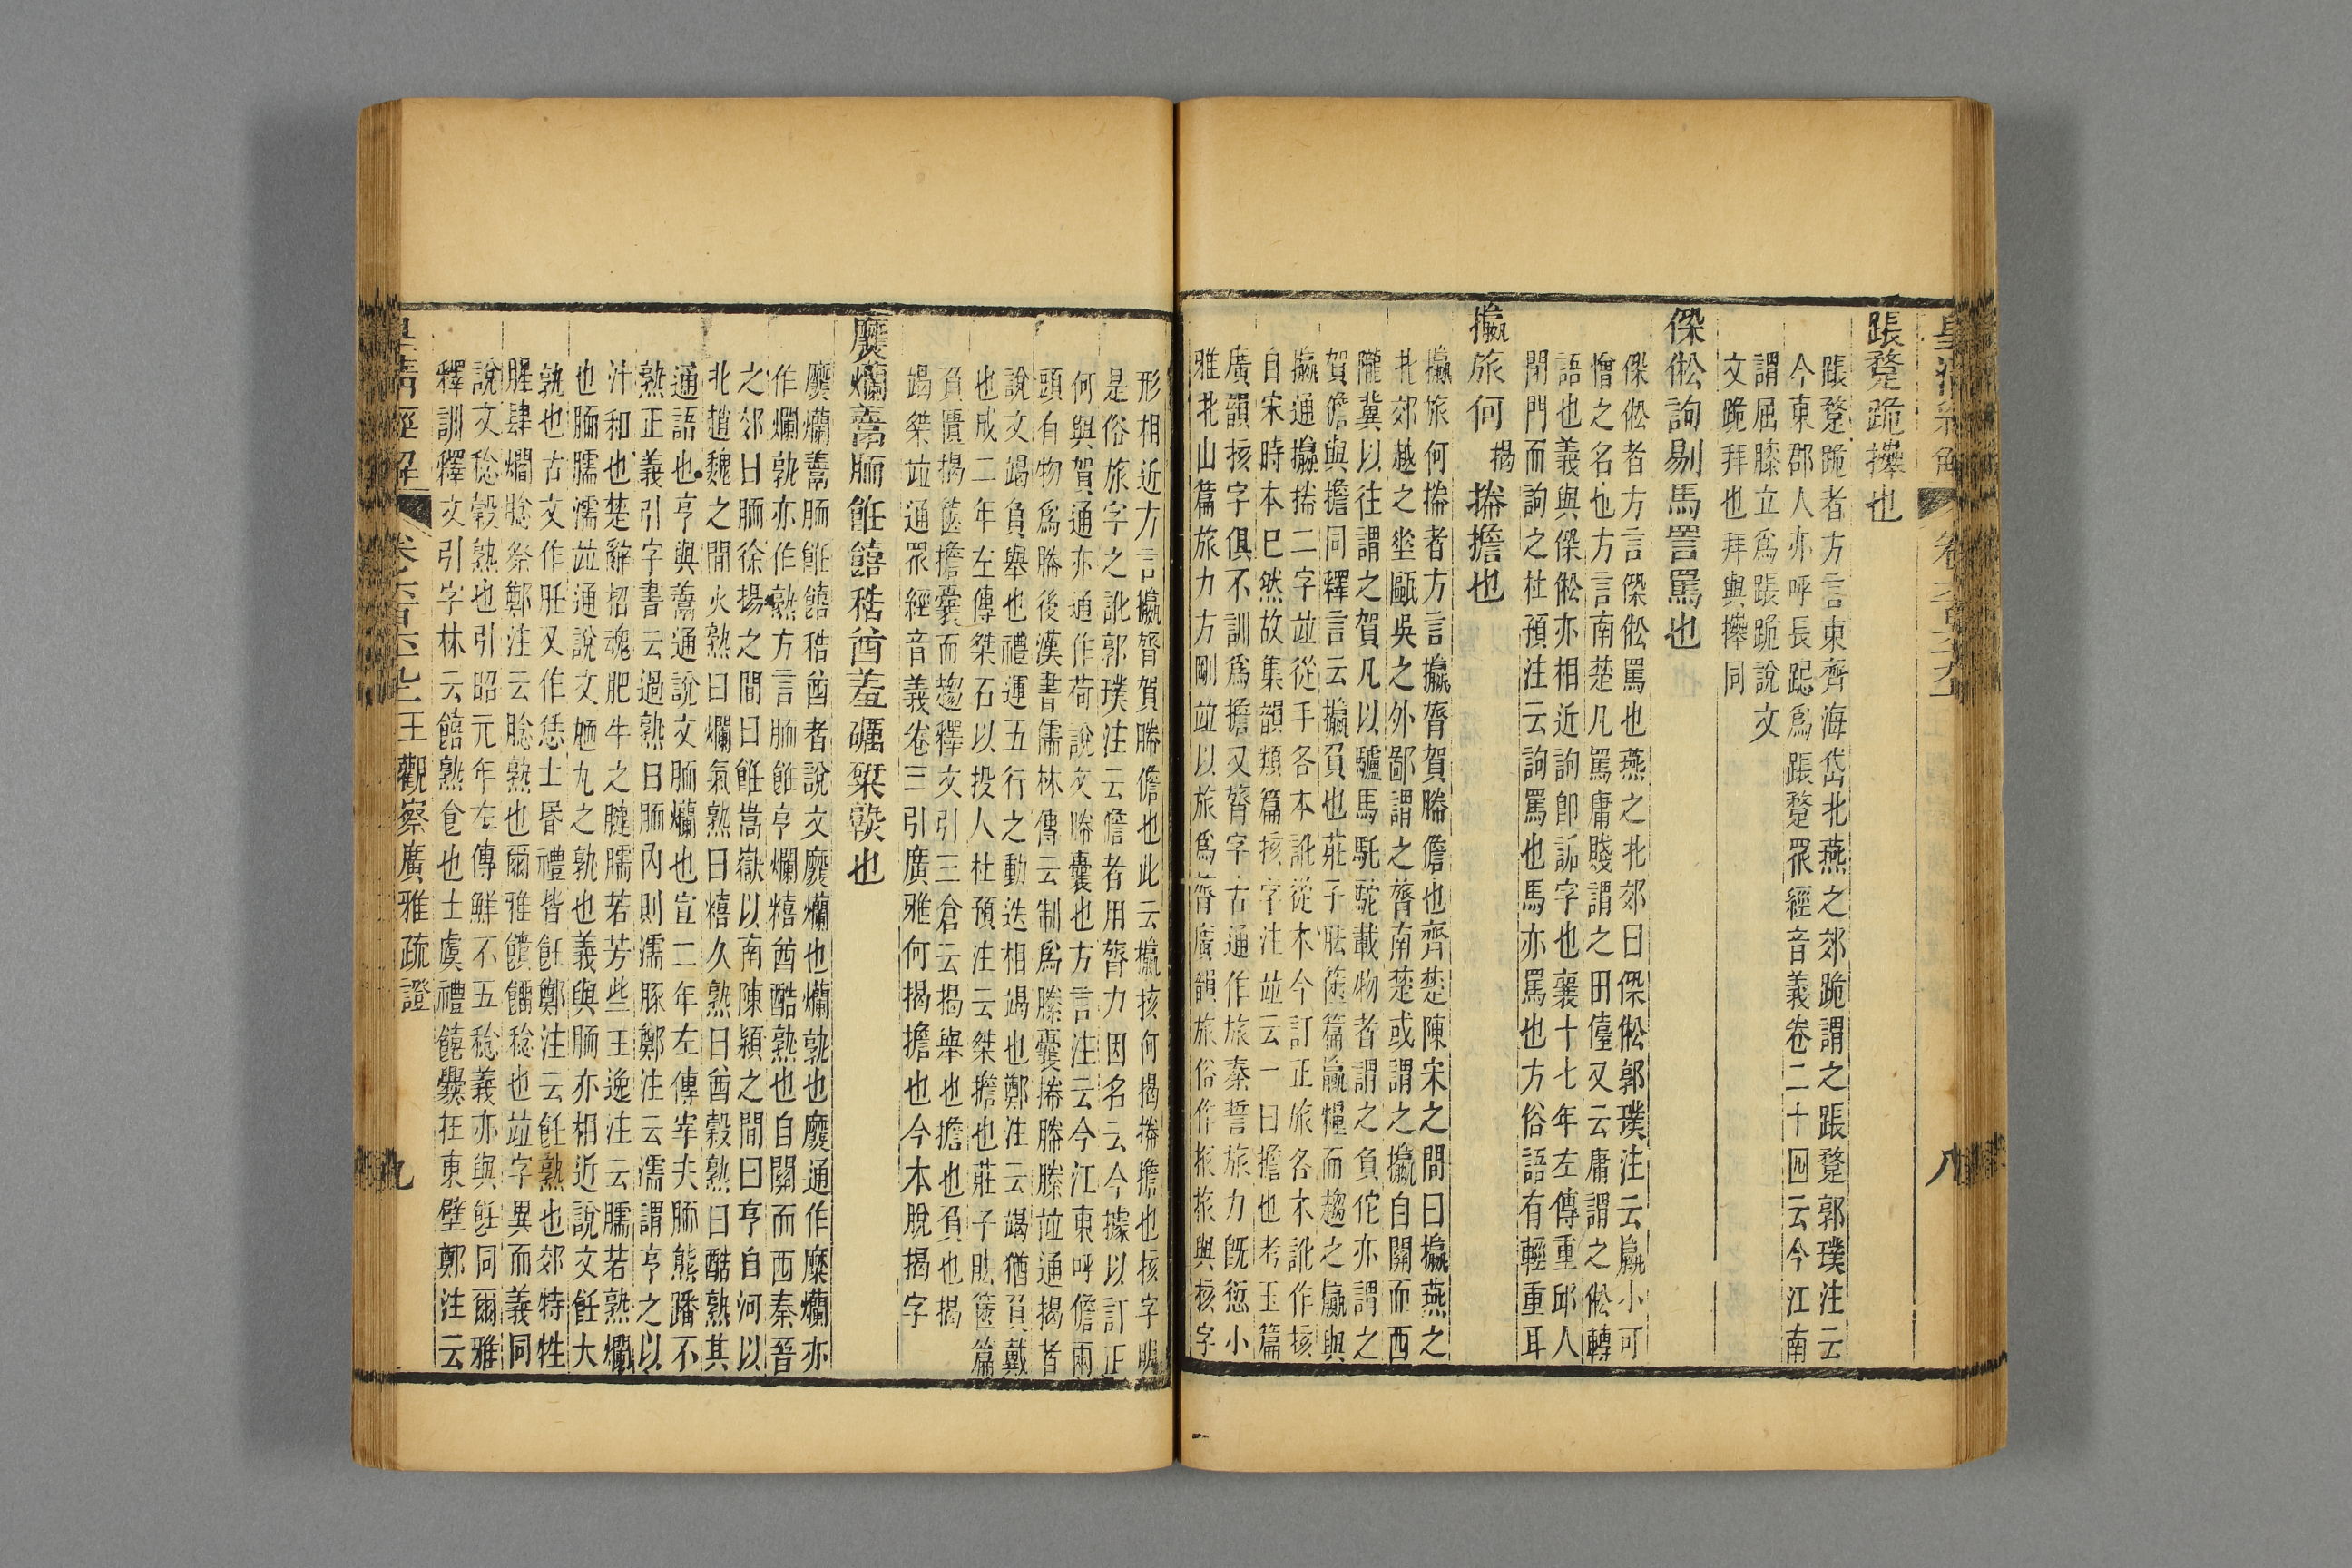 皇清經解
八
䠆蹔跪𢷎也
䠆蹔跪者方言東齊海岱北燕之郊跪謂之䠆蹔郭璞注云
今東郡人亦呼長跽爲䠆蹔眾經音義卷二十四云今江南
謂屈膝立爲䠆跪說文
文跪拜也拜與𢷎同
傑倯詢剔馬詈罵也
傑倯者方言傑倯罵也燕之北郊曰傑倯郭璞注云羸小可
憎之名也方言南楚凡罵庸賤謂之田儓又云庸謂之倯轉
語也義與傑倯亦相近詢卽詬字也襄十七年左傳重邱人
閉門而詢之杜預注云詢罵也馬亦罵也方俗語有輕重耳
攍旅何揭㨹擔也
攍旅何㨹者方言攍膂賀㨹儋也齊楚陳宋之間曰攍燕之
北郊越之垂甌吳之外鄙謂之膂南楚或謂之攍自關而西
隴冀以往謂之賀凡以驢馬馲駝載物者謂之負佗亦謂之
賀儋與擔同釋言云攍負也莊子胠篋篇羸糧而趨之羸與
攍通攍揣二字竝從手各本訛從木今訂正旅各本訛作㧡
自宋時本已然故集韻類篇㧡字注竝云一曰擔也考玉篇
廣韻㧡字俱不訓爲擔又膂字古通作旅秦誓旅力既愆小
雅北山篇旅力方剛竝以旅爲膂廣韻旅俗作挔挔與㧡字
形相近方言攍膂賀㨹儋也此云攍㧡何揭㨹擔也㧡字明
是俗旅字之訛郭璞注云儋者用膂力因名云今據以訂正
何與賀通亦通作荷說文縢囊也方言注云今江東呼儋兩
頭有物爲㨹後漢書儒林傳云制爲縢囊㨹縢竝通揭者
說文竭負舉也禮運五行之動迭相竭也鄭注云竭猶負戴
也成二年左傳桀石以投人杜預注云桀擔也莊子胠篋篇
負匱揭篋擔囊而趨釋文引三倉云揭舉也擔也負也揭
竭桀竝通眾經音義卷三引廣雅何揭擔也今本脫揭字
䊳爛䰞胹飪饎酋羞𥖎𥻦𤎅也
䊳爛䰞胹飪饎酋者說文䊳爛也爛孰也䊳通作糜爛亦
作爛孰亦作熟方言胹飪亨爛糦酋酷熟也自關而西秦晉
之郊曰胹徐揚之間曰飪嵩嶽以南陳潁之間曰亨自河以
北趙魏之間火熟曰爛氣熟曰糦久熟曰酋穀熟曰酷熟其
通語也亨與䰞通說文胹爛也宣二年左傳宰夫胹熊蹯不
熟正義引字書云過熟曰胹內則濡豚鄭注云濡謂亨之以
汁和也楚辭招魂肥牛之腱臑若芳些王逸注云臑若熟爛
也胹臑濡竝通說文𩱈丸之孰也義與胹亦相近說文飪大
孰也古文作肚又作恁士昏禮皆飪鄭注云飪熟也郊特牲
腥肆爓腍祭鄭注云腍熟也爾雅饙餾稔也竝字異而義同
說文稔穀熟也引昭元年左傳鮮不五稔義亦與飪同爾雅
釋訓釋文引字林云饎熟食也士虞禮饎爨在東壁鄭注云
皇清經解 王觀察廣雅疏證
九